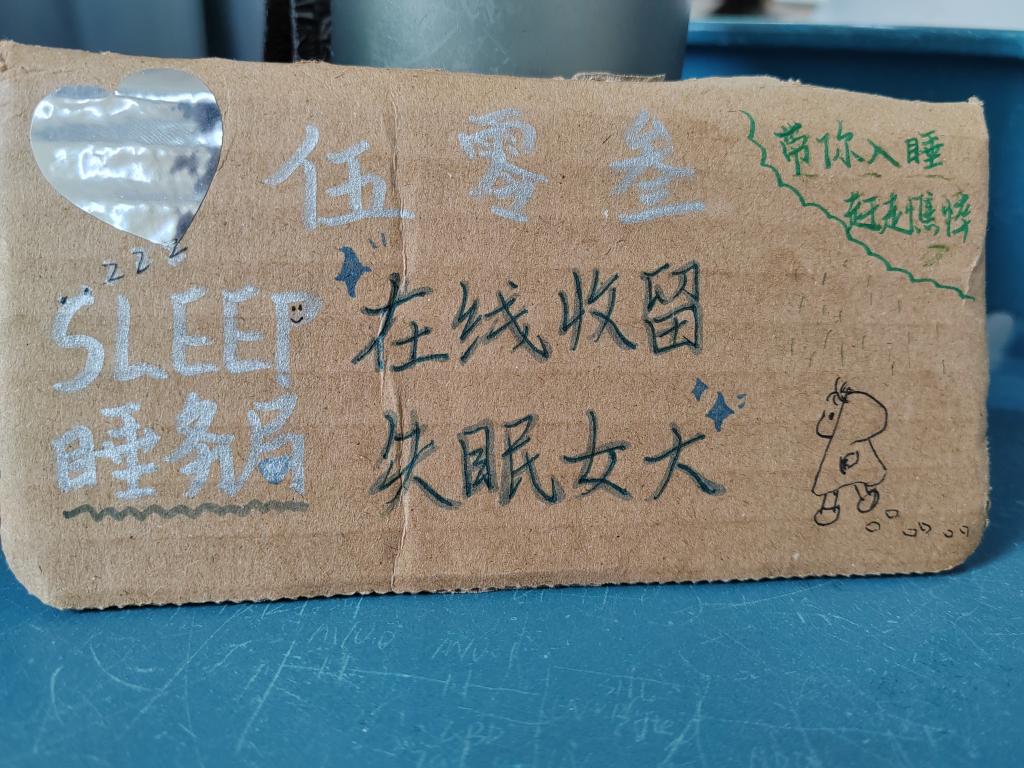 伍零叁
带你入睡
赶走憔悴
zzz
SLEEP
睡务局
在线收留
失眠女大